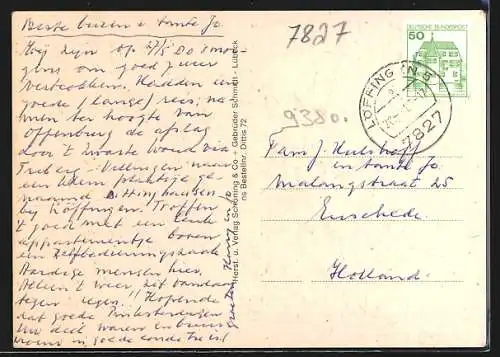 Beste buren en tante Jo.
Wij zijn op 17/5 80 's mor-
gens om goed 7 uur
vertrokken. Hadden een
goede (lange) reis, na-
men ter hoogte van
Offenburg de afslag
door 't zwarte woud via
Triberg - Villingen naar
een klein plaatsje ge-
naamd Dittishausen
bij Löffingen. Troffen
't goed met een leuke
appartementje boven
een zelfbedieningszaak
Aardige mensen hier.
Alleen 't weer, zit vandaag
tegen regen!! Hopende
dat goede Pinksterdagen
in goede conditie is!
groeten Harry en Jo
7827
9380.
DEUTSCHE BUNDESPOST
50
LÖFFINGEN 5
7827
Herst. u. Verlag Schöning & Co + Gebrüder Schmidt - Lübeck
ns Bestellnr. Dittis 72
Fam J. Hulshoff
en tante Jo
Malangstraat 25
Enschede
Holland.